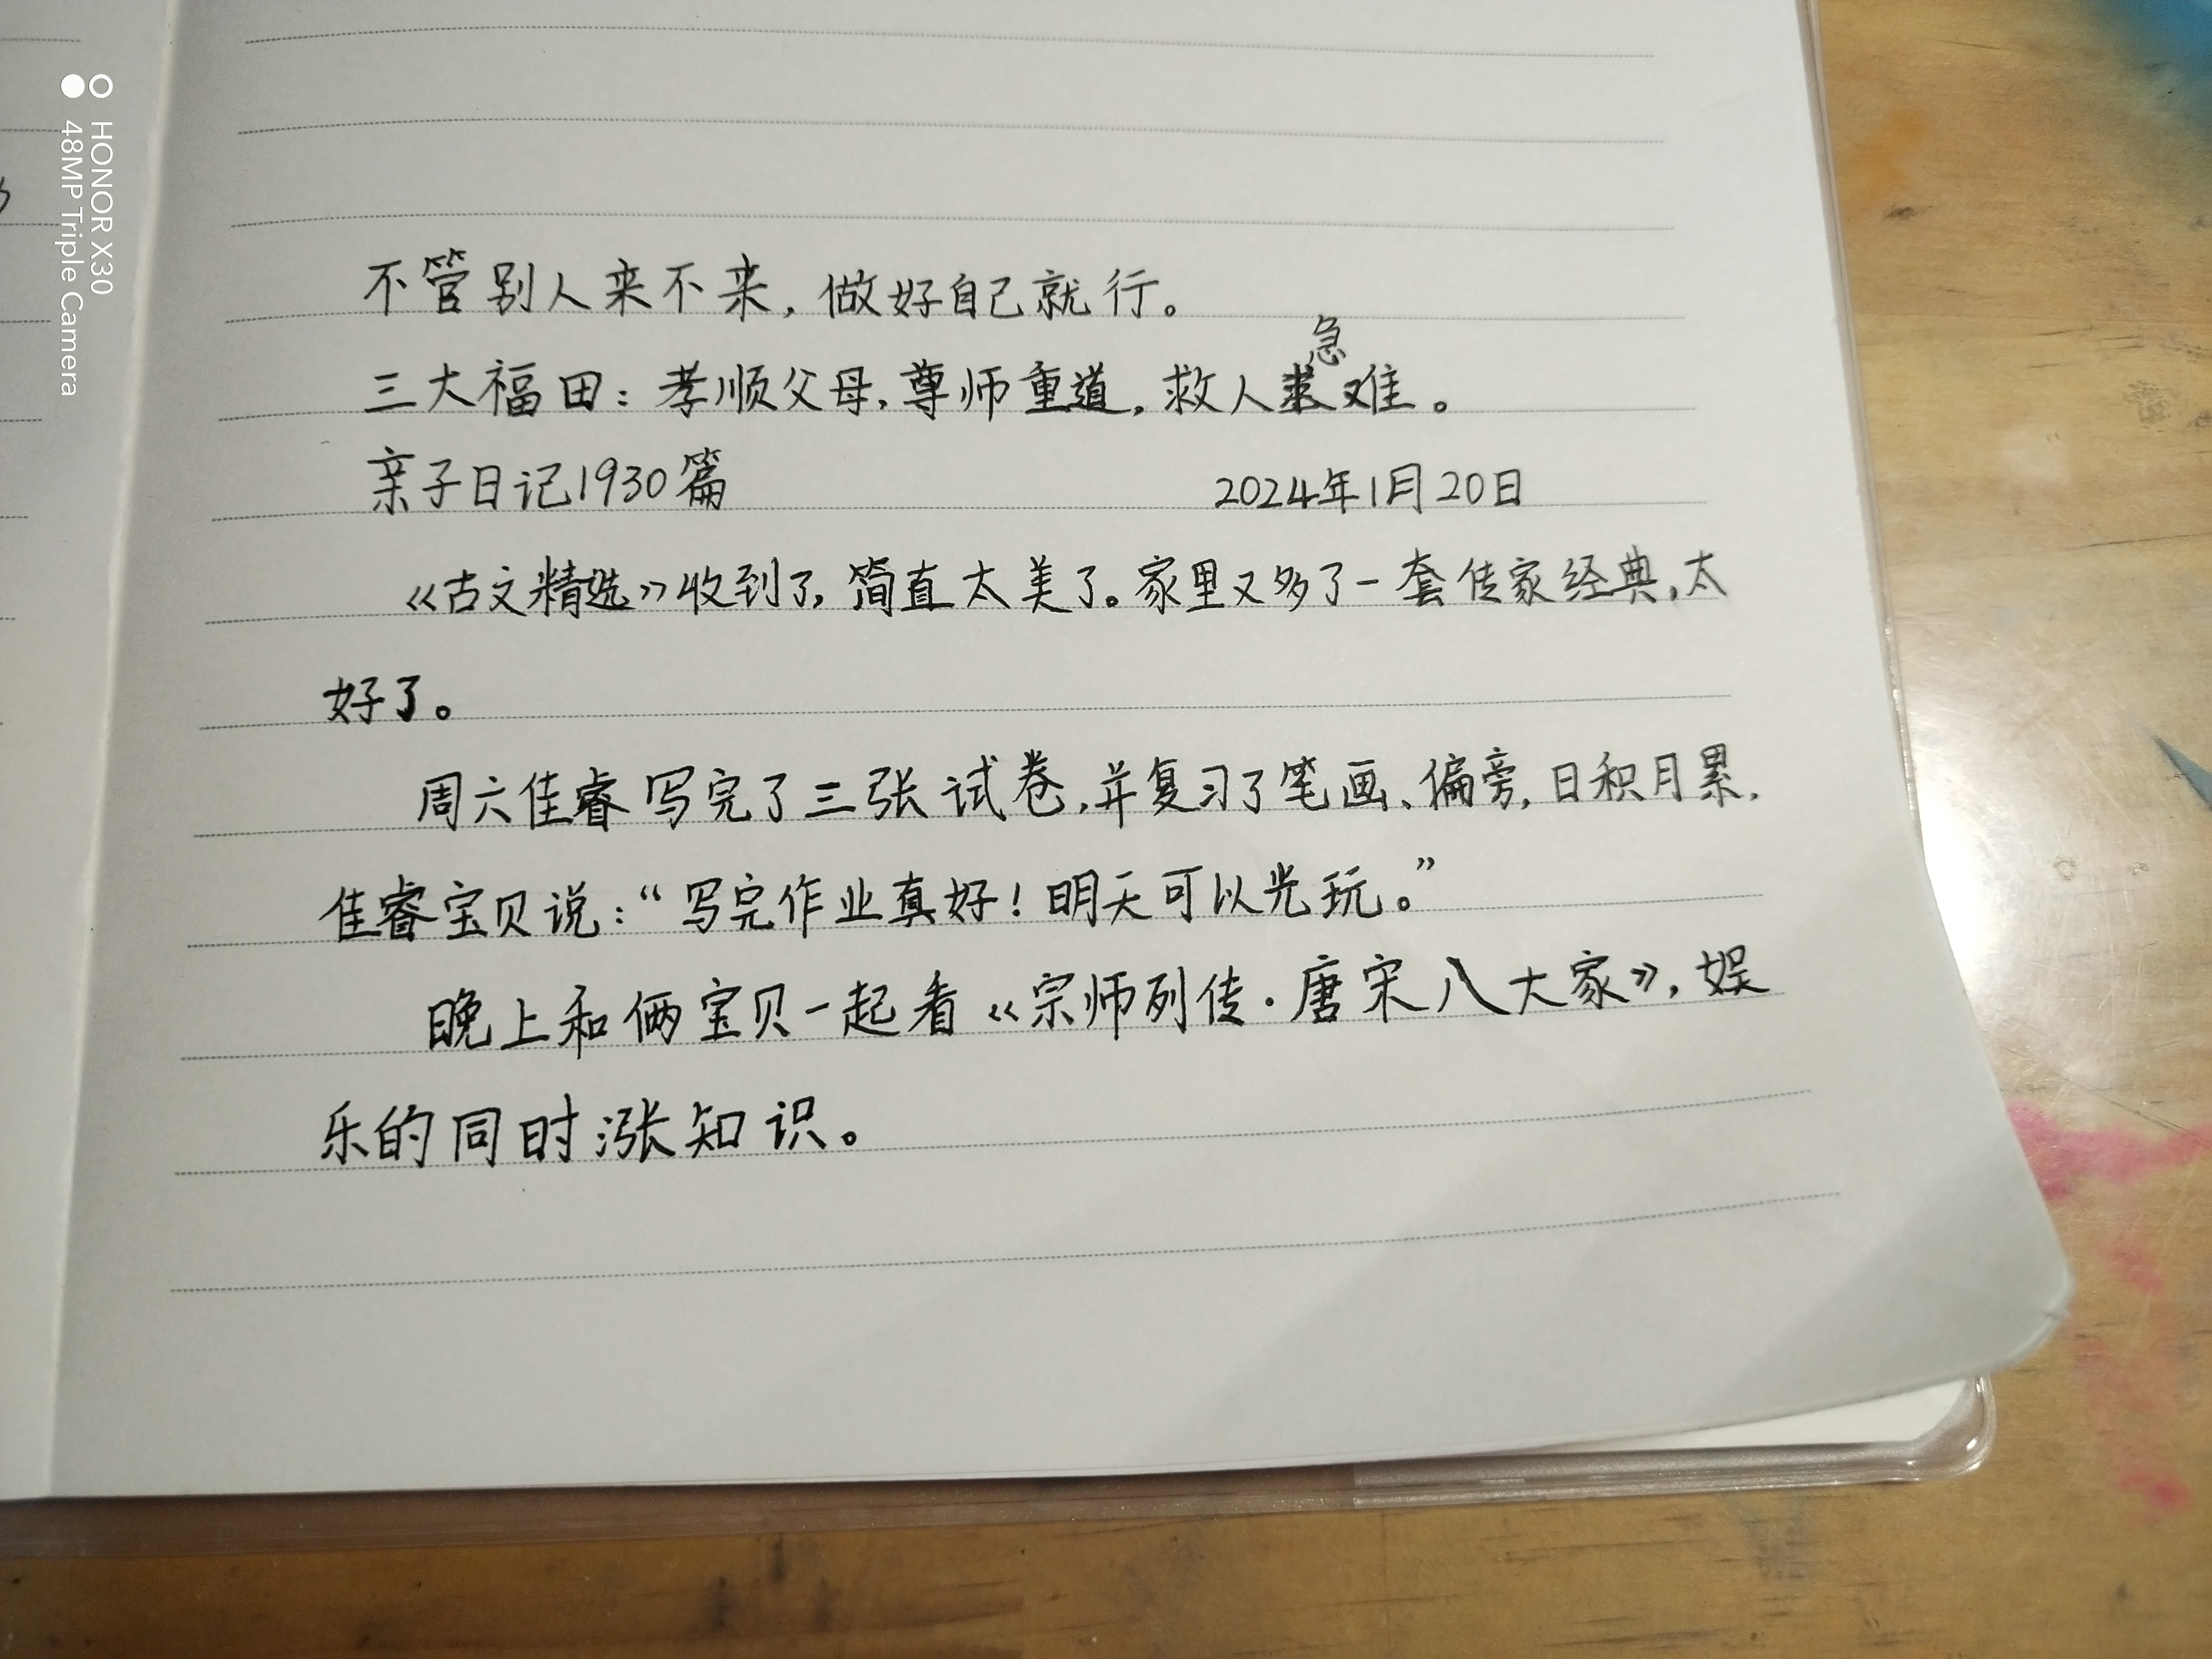 HONOR X30
48MP Triple Camera
不管别人来不来，做好自己就行。
三大福田：孝顺父母，尊师重道，救人急难。
亲子日记1930篇 2024年1月20日
《古文精选》收到了，简直太美了。家里又多了一套传家经典，太
好了。
周六佳睿写完了三张试卷，并复习了笔画、偏旁，日积月累，
佳睿宝贝说：“写完作业真好！明天可以光玩。”
晚上和俩宝贝一起看《宗师列传·唐宋八大家》，娱
乐的同时涨知识。